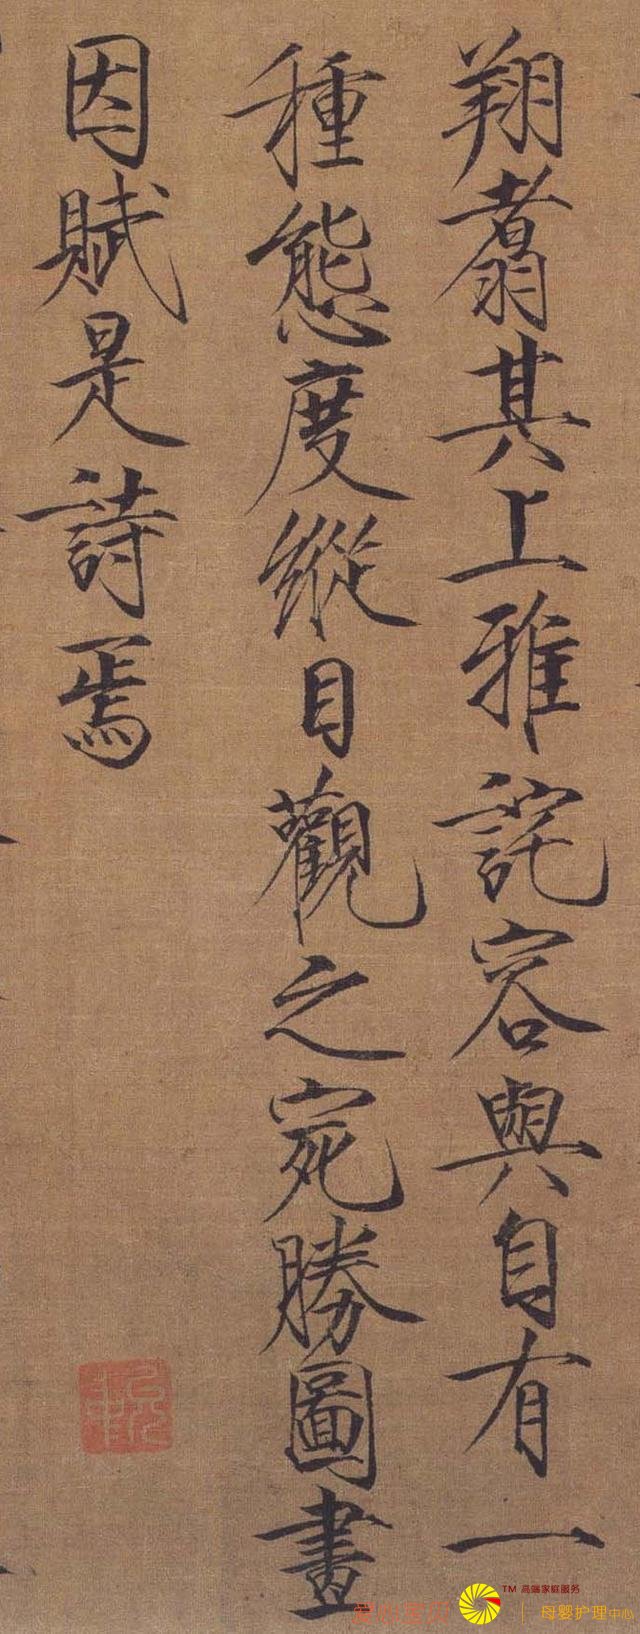 翔翥其上雅詫容與自有一
種態度縱目觀之宛勝圖畫
因賦是詩焉
TM 高端家庭服务
母婴护理中心